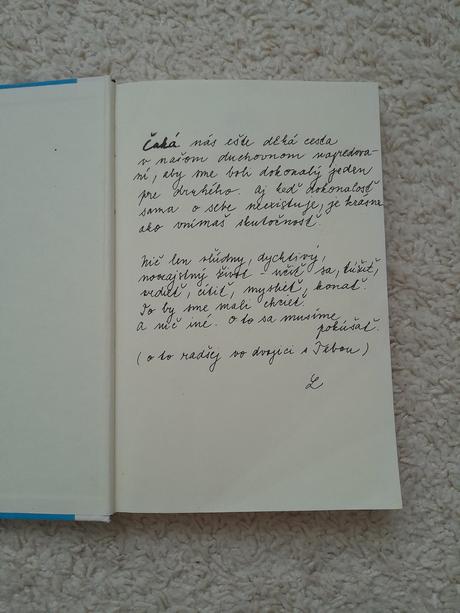 Čaká nás ešte dlhá cesta
v našom duchovnom napredova-
ní, aby sme boli dokonalý jeden
pre druhého. Aj keď dokonalosť
sama o sebe neexistuje, je krásne
ako vnímaš skutočnosť.
Nič len vľúdny, dychtivý,
život - učiť sa, túžiť,
vedieť, cítiť, myslieť, konať.
To by sme mali chcieť.
A nič iné. O to sa musíme
pokúšať.
(o to radšej vo dvojici s Tebou)
L